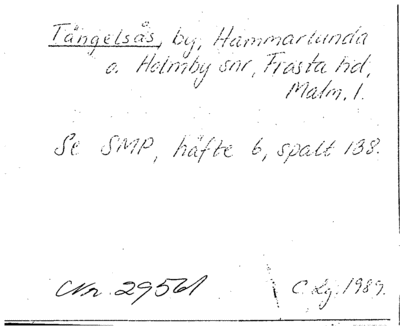 Tängelsås, by, Hammarlunda
o. Holmby snr, Frosta hd,
Malm. l.
Se SMP, häfte 6, spalt 138.
Nr 29561
C. Lg. 1989.